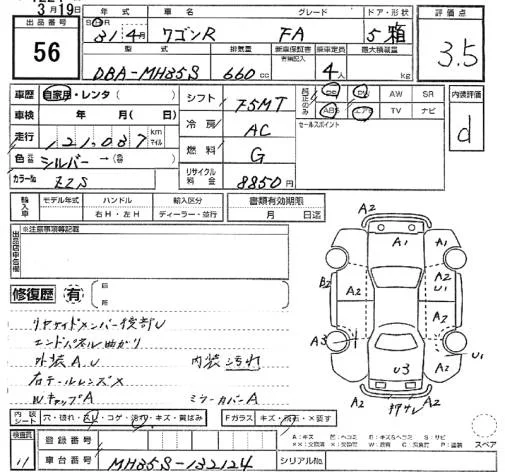 3月19日
出品番号
56
年式 車名 グレード ドア・形状
31 4月 ワゴンR FA 5 箱
型式 排気量 新車保証書 乗車定員 最大積載量
有無記入
DBA-MH35S 660cc 4人 kg
評価点
3.5
車歴 自家用・レンタ( )
車検 年 月( 日)
走行 121,087 km マイル
色 シルバー →(色替 )
カラーNo. ZZS
シフト F5MT
冷房 AC
燃料 G
リサイクル料金 8850円
純正のみ PS PW AW SR
ABS エアB TV ナビ
セールスポイント
内装評価
d
輸入車 モデル年式 ハンドル 輸入区分
右H・左H ディーラー・並行
書類有効期限
月 日迄
出品店申告欄 ※注意事項等記載
修復歴 有
リヤサイドメンバー後部U
エンドパネル曲がり
外装A.U 内装汚れ
右テールレンズX
WキャップA ミラーカバーA
A2
A1 A1
A2 A2
U1
B2 A2 A2
A3 A2
U1
U3
A2 押サレ A2
内装シート 穴・破れ・スレ・コゲ・汚れ・キズ・黄ばみ Fガラス キズ・飛石・X要す
A:キズ
スペア
検査員
登録番号
車台番号 MH35S-132124 シリアルNo.